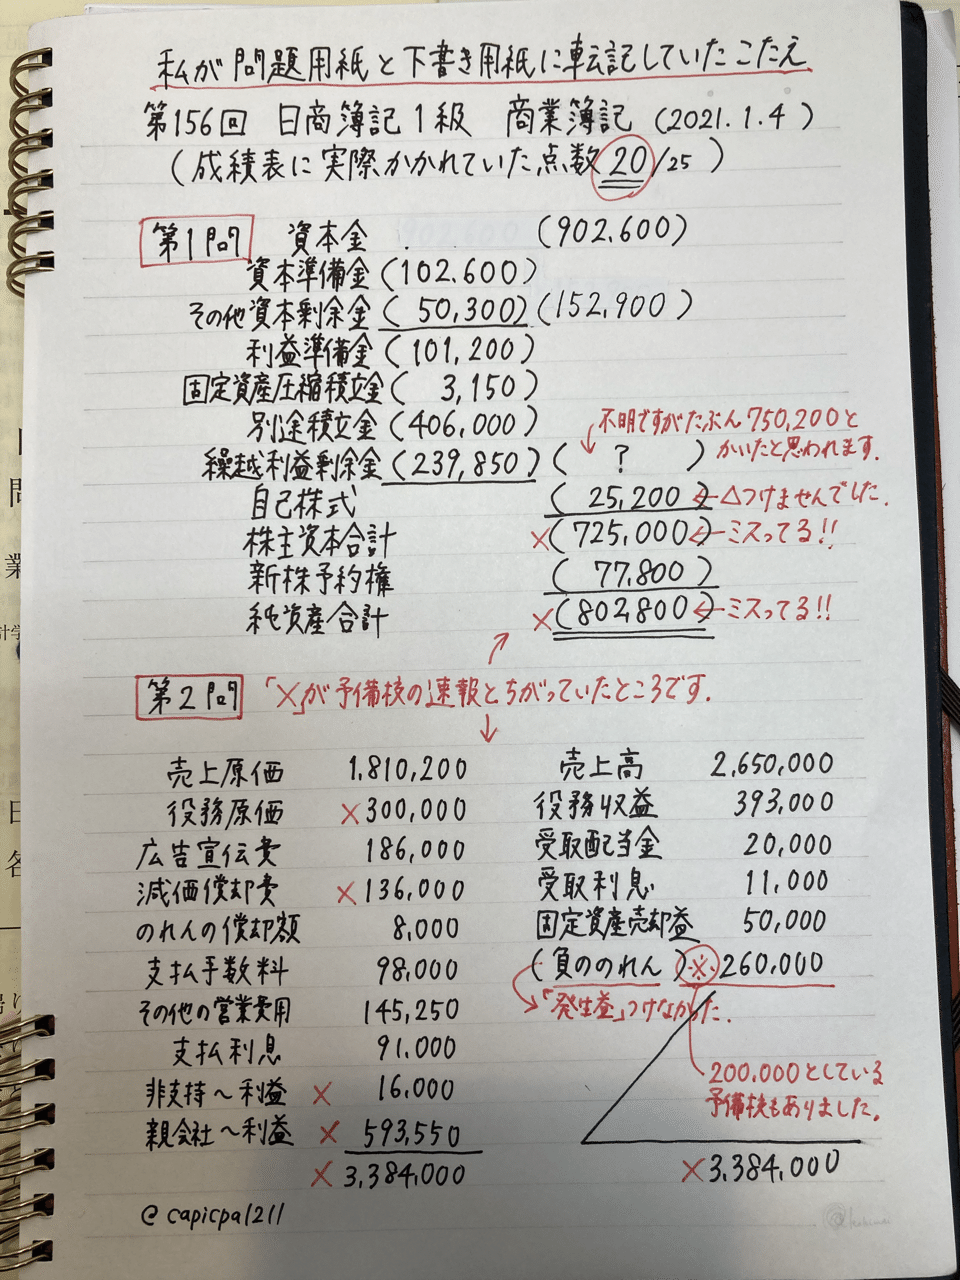 私が問題用紙と下書き用紙に転記していたこたえ
第156回 日商簿記1級 商業簿記 (2021.1.4)
(成績表に実際かかれていた点数 20/25)
第1問 資本金 (902,600)
資本準備金 (102,600)
その他資本剰余金 (50,300) (152,900)
利益準備金 (101,200)
固定資産圧縮積立金 (3,150)
別途積立金 (406,000)
不明ですがたぶん750,200と
かいたと思われます.
繰越利益剰余金 (239,850) ( ? )
自己株式 (25,200) ←△つけませんでした.
株主資本合計 ×(725,000) ←ミスってる!!
新株予約権 (77,800)
純資産合計 ×(802,800) ←ミスってる!!
第2問 「×」が予備校の速報とちがっていたところです.
売上原価 1,810,200 売上高 2,650,000
役務原価 ×300,000 役務収益 393,000
広告宣伝費 186,000 受取配当金 20,000
減価償却費 ×136,000 受取利息 11,000
のれんの償却額 8,000 固定資産売却益 50,000
支払手数料 98,000 (負ののれん) ※ 260,000
その他の営業費用 145,250 「発生益」つけなかった.
支払利息 91,000
非支持〜利益 × 16,000 200,000としている
予備校もありました.
親会社〜利益 × 593,550
× 3,384,000 ×3,384,000
@capicpa1211